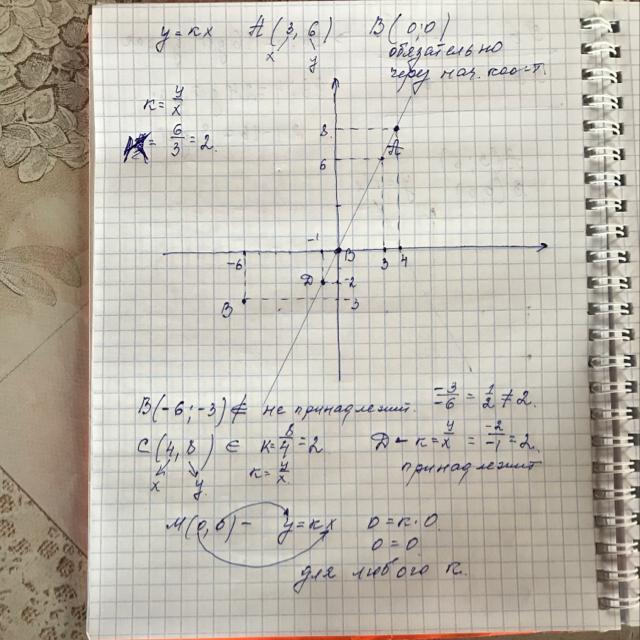 y = кx   A(3, 6)   B(0; 0)
x y
обязательно
через нач. коо-т.
к = y/x
= 6/3 = 2.
8
A
6
-1
-6
B
3 4
D
-2
B
3
B(-6; -3) ∉ не принадлежит. -3/-6 = 1/2 ≠ 2.
C(4, 8) ∈ к = 8/4 = 2   D - к = y/x = -2/-1 = 2.
x y   к = y/x   принадлежит
M(0, 0) - y = кx   0 = к · 0
0 = 0
для любого к.